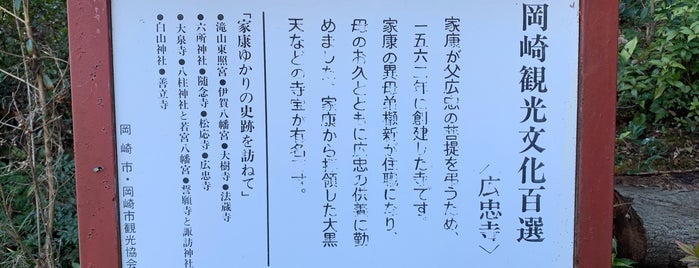 岡崎観光文化百選
〈広忠寺〉
家康が父広忠の菩提を弔うため、
一五六二年に創建した寺です。
家康の異母弟樵新が住職になり、
母のお久とともに広忠の供養に勤
めました。家康から拝領した大黒
天などの寺宝が有名です。
「家康ゆかりの史跡を訪ねて」
●滝山東照宮●伊賀八幡宮●大樹寺●法蔵寺
●六所神社●随念寺●松応寺●広忠寺
●大泉寺●八柱神社と若宮八幡宮●誓願寺と諏訪神社
●白山神社●善立寺
岡崎市・岡崎市観光協会